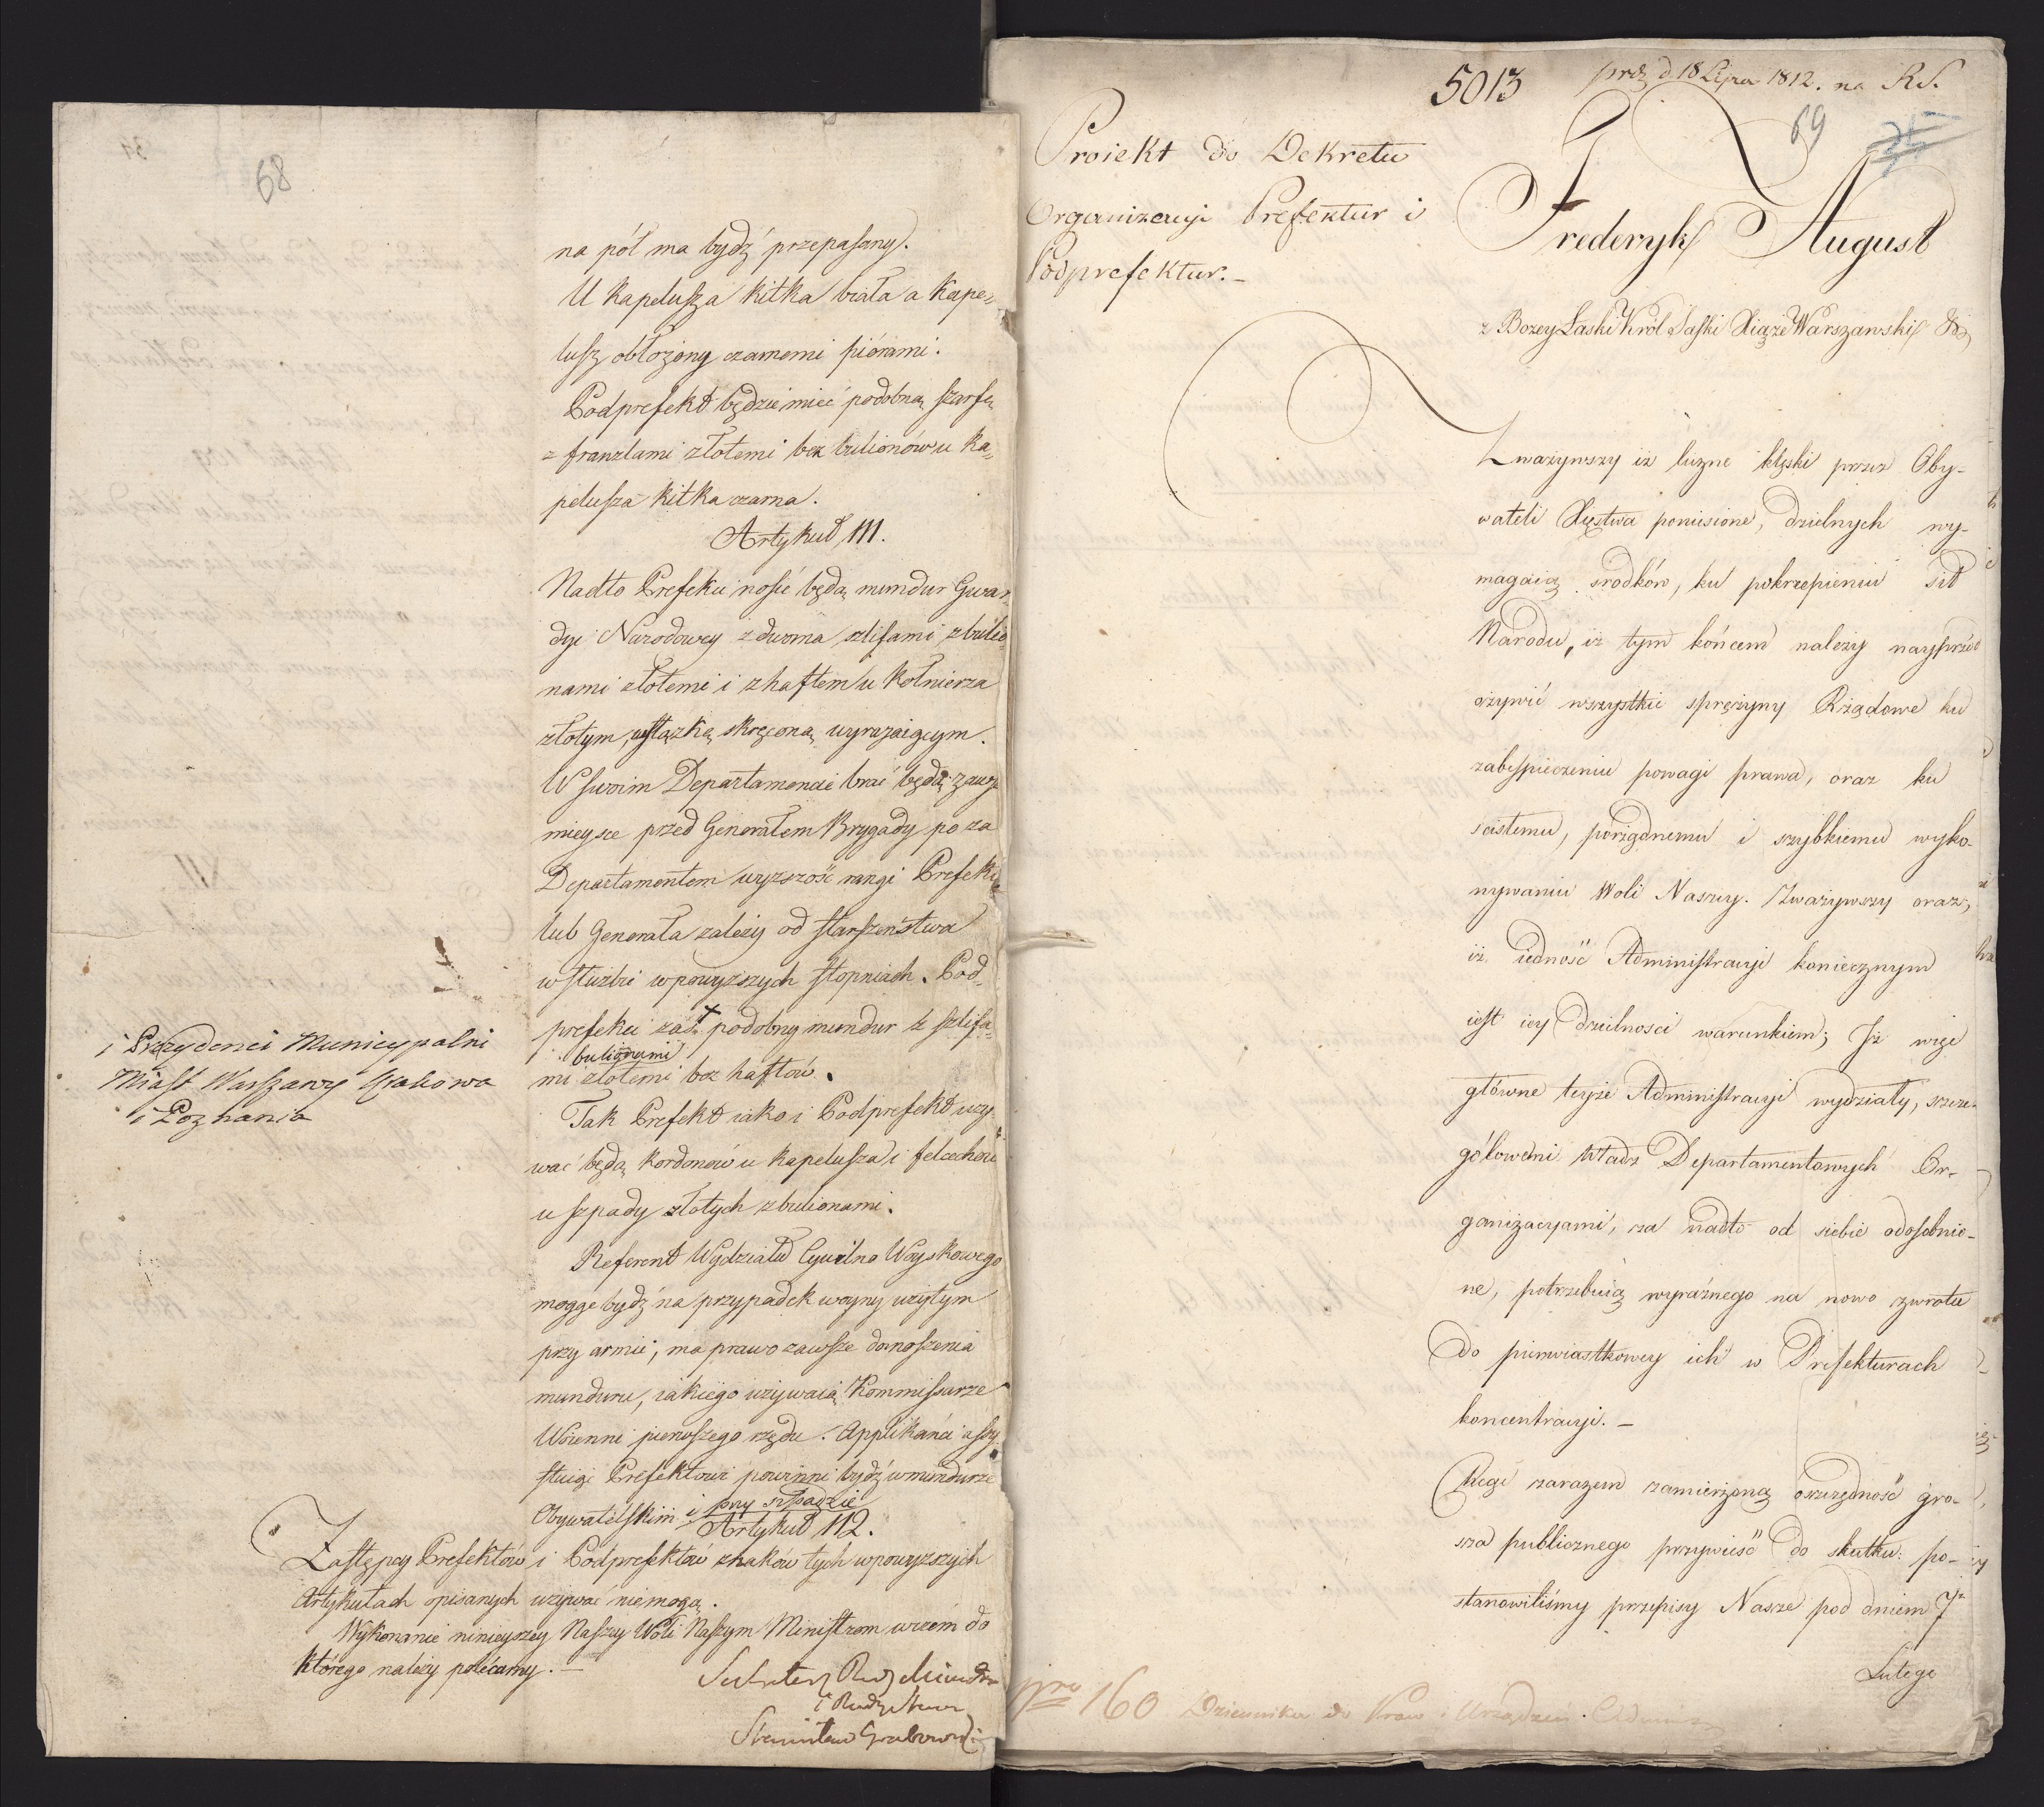 68
na pół ma bydź przepasany.
U kapelusza kitka biała a kape=
lusz obłożony czarnemi piórami.
Podprefekt będzie mieć podobną szarfę
z franzlami złotemi bez bulionów u ka=
pelusza kitka czarna.
Artykuł 111.
Nadto Prefekci nosić będą mundur Gwar
dyi Narodowey z dwoma szlifami z bulio
nami złotemi i z haftem u kołnierza
złotym, wstązką skręconą wyrażaiącym.
W swoim Departamencie brać będą zawsze
mieysce przed Generałem Brygady, po za
Departamentem wyższość rangi Prefekta
lub Generała zależy od starszeństwa
w służbie w powyższych stopniach. Pod=
prefekci zaś + podobny mundur z szlifa=
bulionami
mi złotemi bez haftów.
i Prezydenci Municypalni
Miast Warszawy Krakowa
i Poznania
Tak Prefekt iako i Podprefekt uży
wać będą kordonów u kapelusza i felcechów
u szpady złotych z bulionami.
Referent Wydziału Cywilno Woyskowego
mogąc bydź na przypadek woyny użytym
przy armii, ma prawo zawsze do noszenia
munduru, iakiego używaią Kommissarze
Woienni pierwszego rzędu. Applikanci assy
stuiąc Prefektowi powinni bydź w mundurze
Obywatelskim i przy szpadzie
Artykuł 112.
Zastępcy Prefektów i Podprefektów znaków tych w powyższych
Artykułach opisanych używać nie mogą.
Wykonanie ninieyszey Naszey Woli Naszym Ministrom w czem do
którego należy polecamy. —
Sekretarz Rady Ministrów
i Rady Stanu
Stanisław Grabowski
5013
prez d 18 Lipca 1812. na R S.
69
Proiekt do Dekretu
Organizacyi Prefektur i
Podprefektur. –
Fryderyk August
z Bożey Łaski Król Saski Xiąże Warszawski &&
Zważywszy iż liczne klęski przez Oby-
wateli Xięstwa poniesione, dzielnych wy-
magaią srodków, ku pokrzepieniu sił
Narodu, iż tym końcem należy nayprzód
ożywić wszystkie sprężyny Rządowe ku
zabespieczeniu powagi prawa, oraz ku
scisłemu, porządnemu i szybkiemu wyko-
nywaniu Woli Naszey. Zważywszy oraz,
iż iedność Administracyi koniecznym
iest iey dzielnosci warunkiem; Iż więc
główne teyże Administracyi wydziały, szcze-
gółowemi Władz Departamentowych Or-
ganizacyami, za nadto od siebie odosobnio-
ne, potrzebuią wyraźnego na nowo zwrotu
do pierwiastkowey ich w Prefekturach
koncentracyi. –
Chcąc zarazem zamierzoną oszczędność gro-
sza publicznego przywieść do skutku: po-
stanowiliśmy przepisy Nasze pod dniem 7
Lutego
160 Dziennika do Praw i Urządzen.